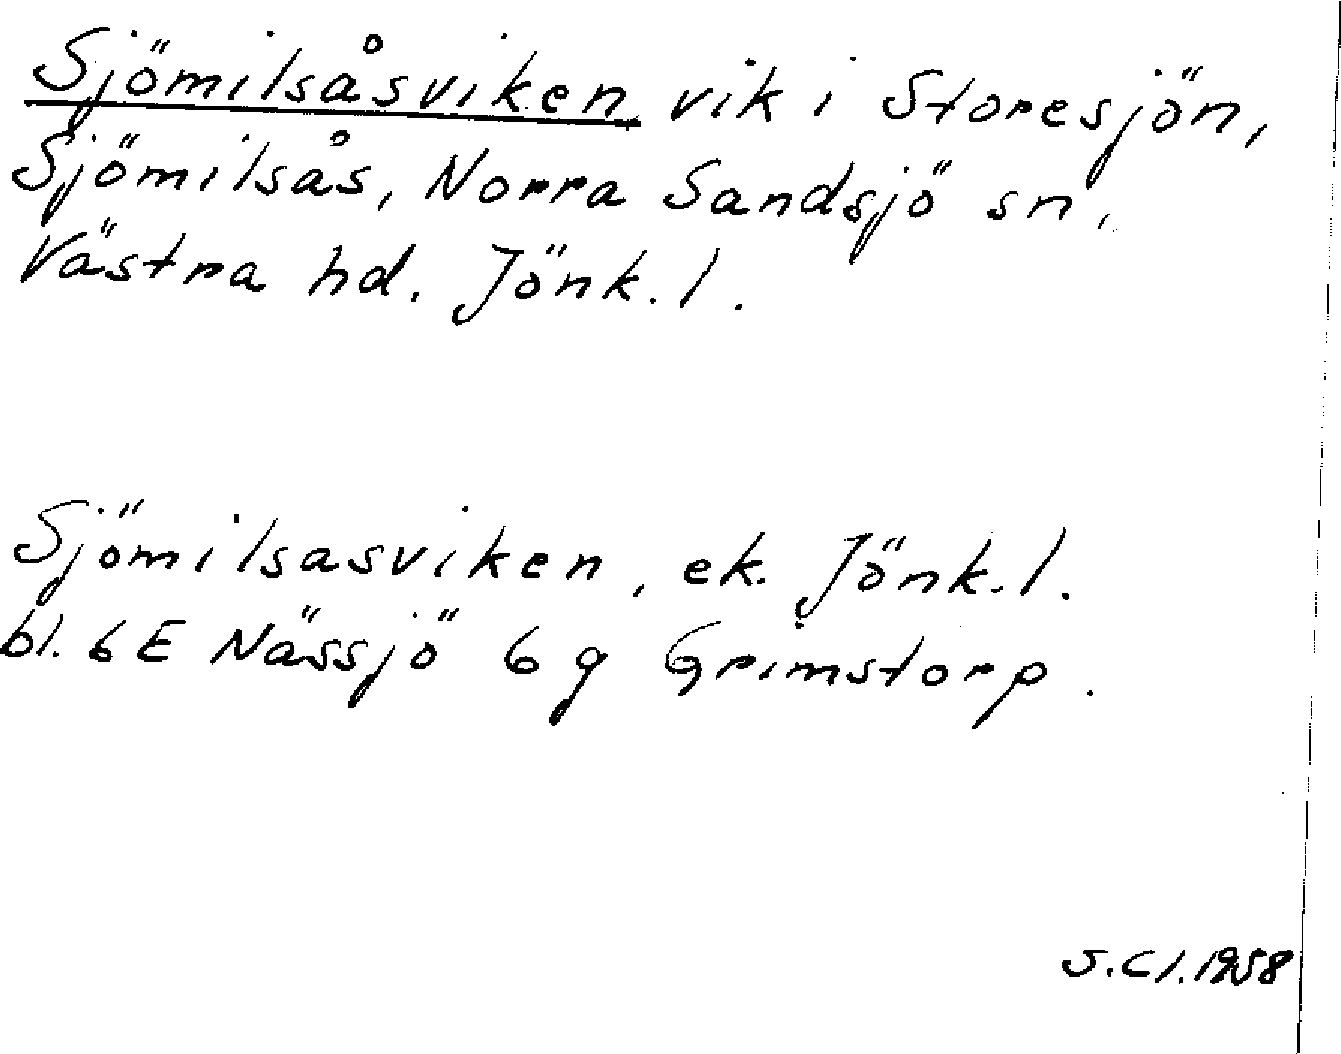 Sjömilsåsviken vik i Storesjön,
Sjömilsås, Norra Sandsjö sn,
Västra hd. Jönk. l.
Sjömilsasviken, ek. Jönk. l.
bl. 6 E Nässjö 6 g Grimstorp.
J. Cl. 1958